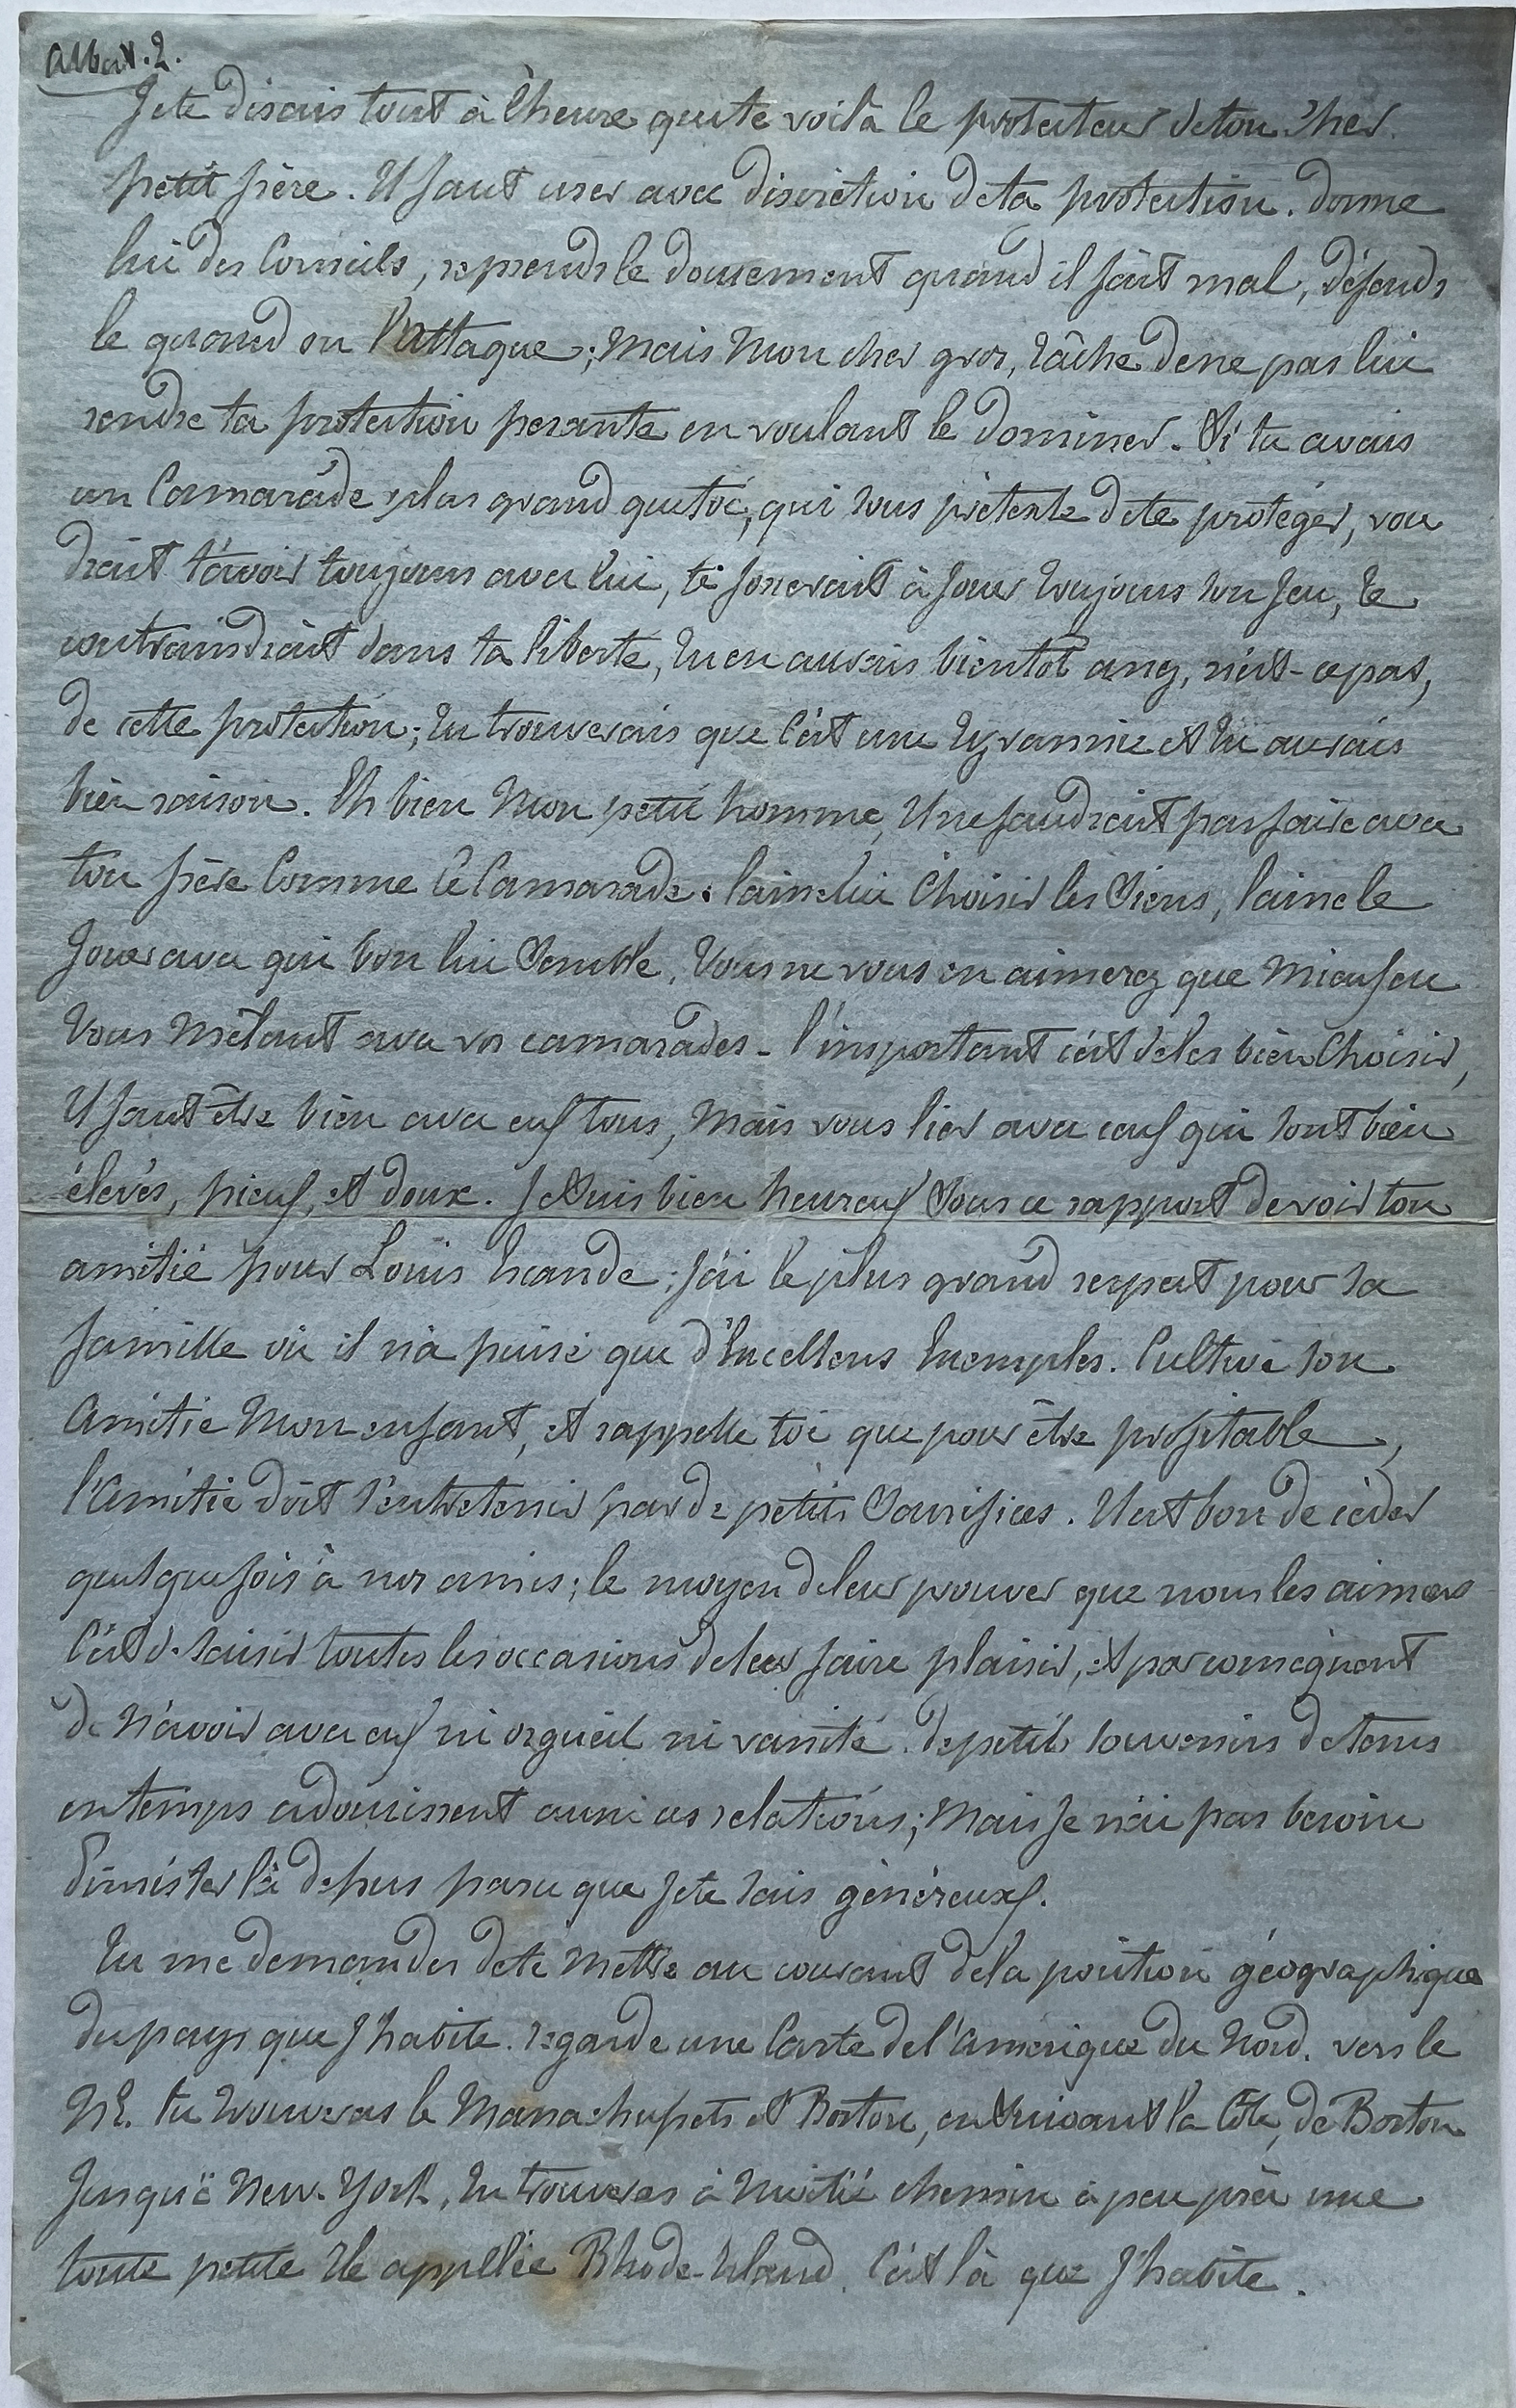 Albert. 2.
Je te disais tout à l'heure que te voilà le protecteur de ton cher
petit frère. Il faut user avec discrétion de ta protection. donne
lui des Conseils, reprends le doucement quand il fait mal, défends
le quand on l'attaque; Mais Mon cher gros, tâche de ne pas lui
rendre ta protection pesante en voulant le dominer. Si tu avais
un Camarade plus grand que toi, qui sous prétexte de te protéger, vou
drait t'avoir toujours avec lui, te forcerait à jouer toujours son jeu, te
contraindrait dans ta liberté, tu en aurais bientôt assez, n'est-ce pas,
de cette protection; tu trouverais que C'est une tyrannie et tu aurais
bien raison. Eh bien Mon petit homme, Il ne faudrait pas faire avec
ton frère Comme Ce Camarade: laisse lui Choisir les Siens, laisse le
Jouer avec qui bon lui Semble, Vous ne vous en aimerez que Mieux en
Vous Mêlant avec vos camarades - l'important c'est de les bien Choisir,
Il faut être bien avec eux tous, Mais vous lier avec ceux qui sont bien
élevés, pieux, et doux. Je Suis bien heureux Sous ce rapport de voir ton
amitié pour Louis ; J'ai le plus grand respect pour sa
famille où il n'a puisé que d'Excellens Exemples. Cultive son
Amitié Mon enfant, et rappelle toi que pour être profitable,
l'Amitié doit s'entretenir par de petits Sacrifices. Il est bon de céder
quelquefois à nos amis; le moyen de leur prouver que nous les aimons
C'est de saisir toutes les occasions de leur faire plaisir, et par conséquent
de N'avoir avec eux ni orgueil ni vanité. de petits souvenirs de tems
en temps adoucissent aussi ces relations; Mais Je n'ai pas besoin
d'insister là dessus parce que Je te sais généreux.
Tu me demandes de te Mettre au courant de la position géographique
du pays que J'habite. regarde une Carte de l'Amérique du Nord. vers le
NE. tu trouveras le Massachusets et Boston, en Suivant la Côte, de Boston
Jusqu'à New-York, tu trouveras à Moitié chemin à peu près une
toute petite Ile appellée Rhode-Island. C'est là que J'habite.